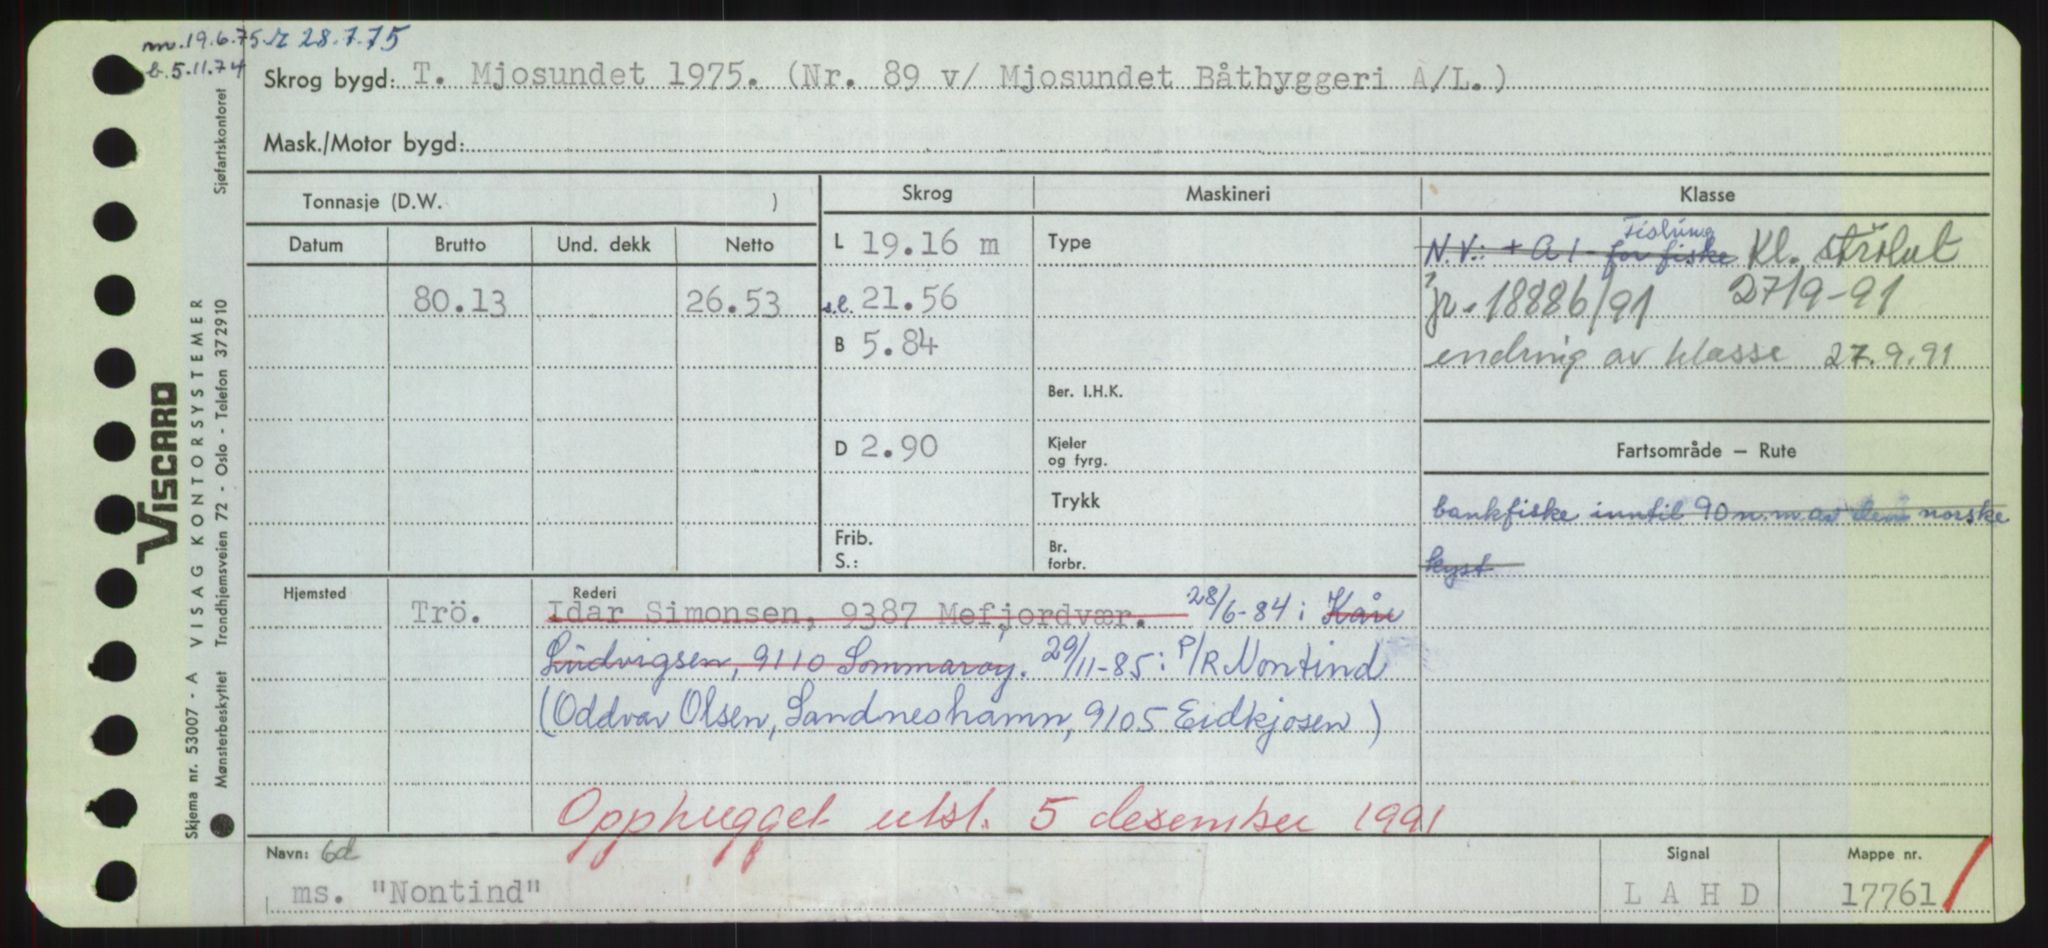 nv. 19.6.75. r 28.7.75
b. 5.11.74
Skrog bygd: T. Mjosundet 1975. (Nr. 89 v/ Mjosundet Båtbyggeri A/L.)
Mask./Motor bygd:
Tonnasje (D.W. )
Skrog
Maskineri
Klasse
Datum
Brutto
Und. dekk
Netto
80.13
26.53
L 19.16 m
s.l. 21.56
B 5.84
D 2.90
Frib.
S.:
Type
Ber. I.H.K.
Kjeler
og fyrg.
Trykk
Br.
forbr.
Fishing
N.V.: + A 1 - for fiske Kl. strøket
jr. 18886/91 27/9-91
endring av klasse 27.9.91
Fartsområde – Rute
bankfiske inntil 90 n.m. av den norske
kyst
Hjemsted
Rederi
Trö.
Idar Simonsen, 9387 Mefjordvær. 28/6-84: Kåre
Ludvigsen, 9110 Sommarøy. 29/11-85: P/R Nontind
(Oddvar Olsen, Sandneshamn, 9105 Eidkjosen)
Opphugget utsl. 5 desember 1991
Navn: 6d
ms. "Nontind"
Signal
L A H D
Mappe nr.
17761
VISCARD
Skjema nr. 53007 - A VISAG KONTORSYSTEMER
Mønsterbeskyttet Trondhjemsveien 72 - Oslo - Telefon 372910 Sjøfartskontoret